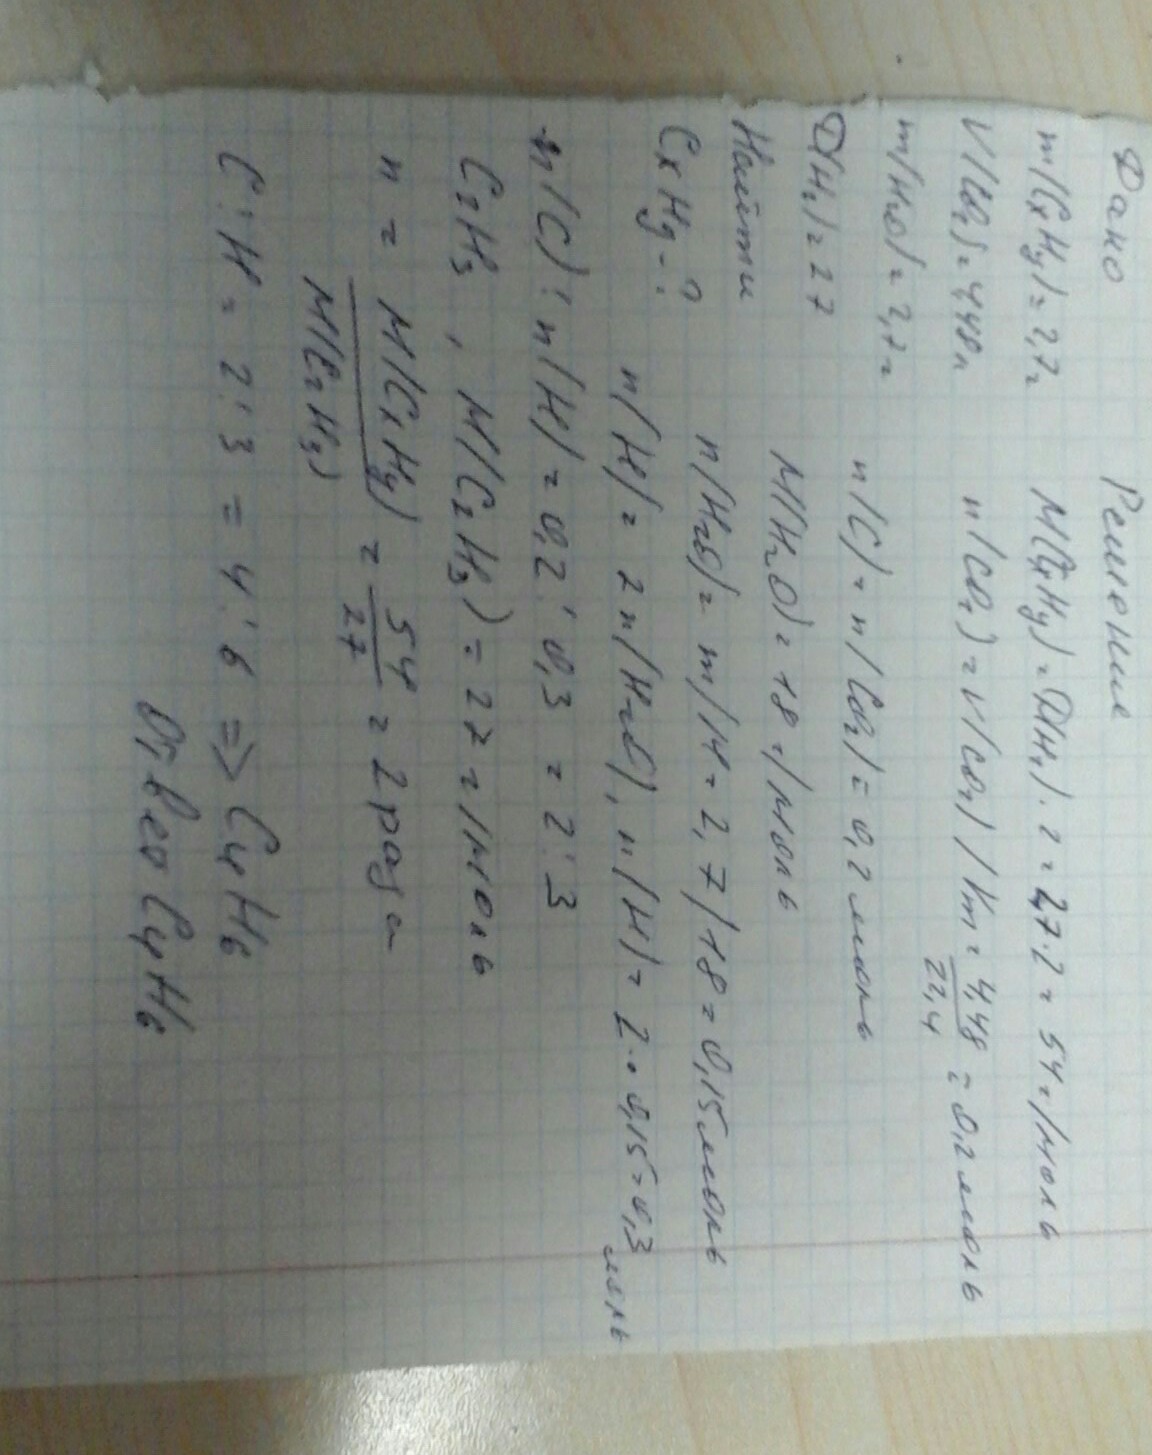 Дано
m(CxHy) = 2,7г
V(CO2) = 4,48л
m(H2O) = 2,7г
D(H2) = 27
Найти
CxHy - ?
Решение
M(CxHy) = D(H2) · 2 = 27·2 = 54г/моль
n(CO2) = V(CO2)/Vm = 4,48/22,4 = 0,2моль
n(C) = n(CO2) = 0,2 моль
M(H2O) = 18г/моль
n(H2O) = m/M = 2,7/18 = 0,15моль
n(H) = 2n(H2O), n(H) = 2·0,15 = 0,3 моль
n(C) : n(H) = 0,2 : 0,3 = 2 : 3
C2H3, M(C2H3) = 27г/моль
n = M(CxHy)/M(C2H3) = 54/27 = 2 раза
C : H = 2 : 3 = 4 : 6 => C4H6
Ответ C4H6